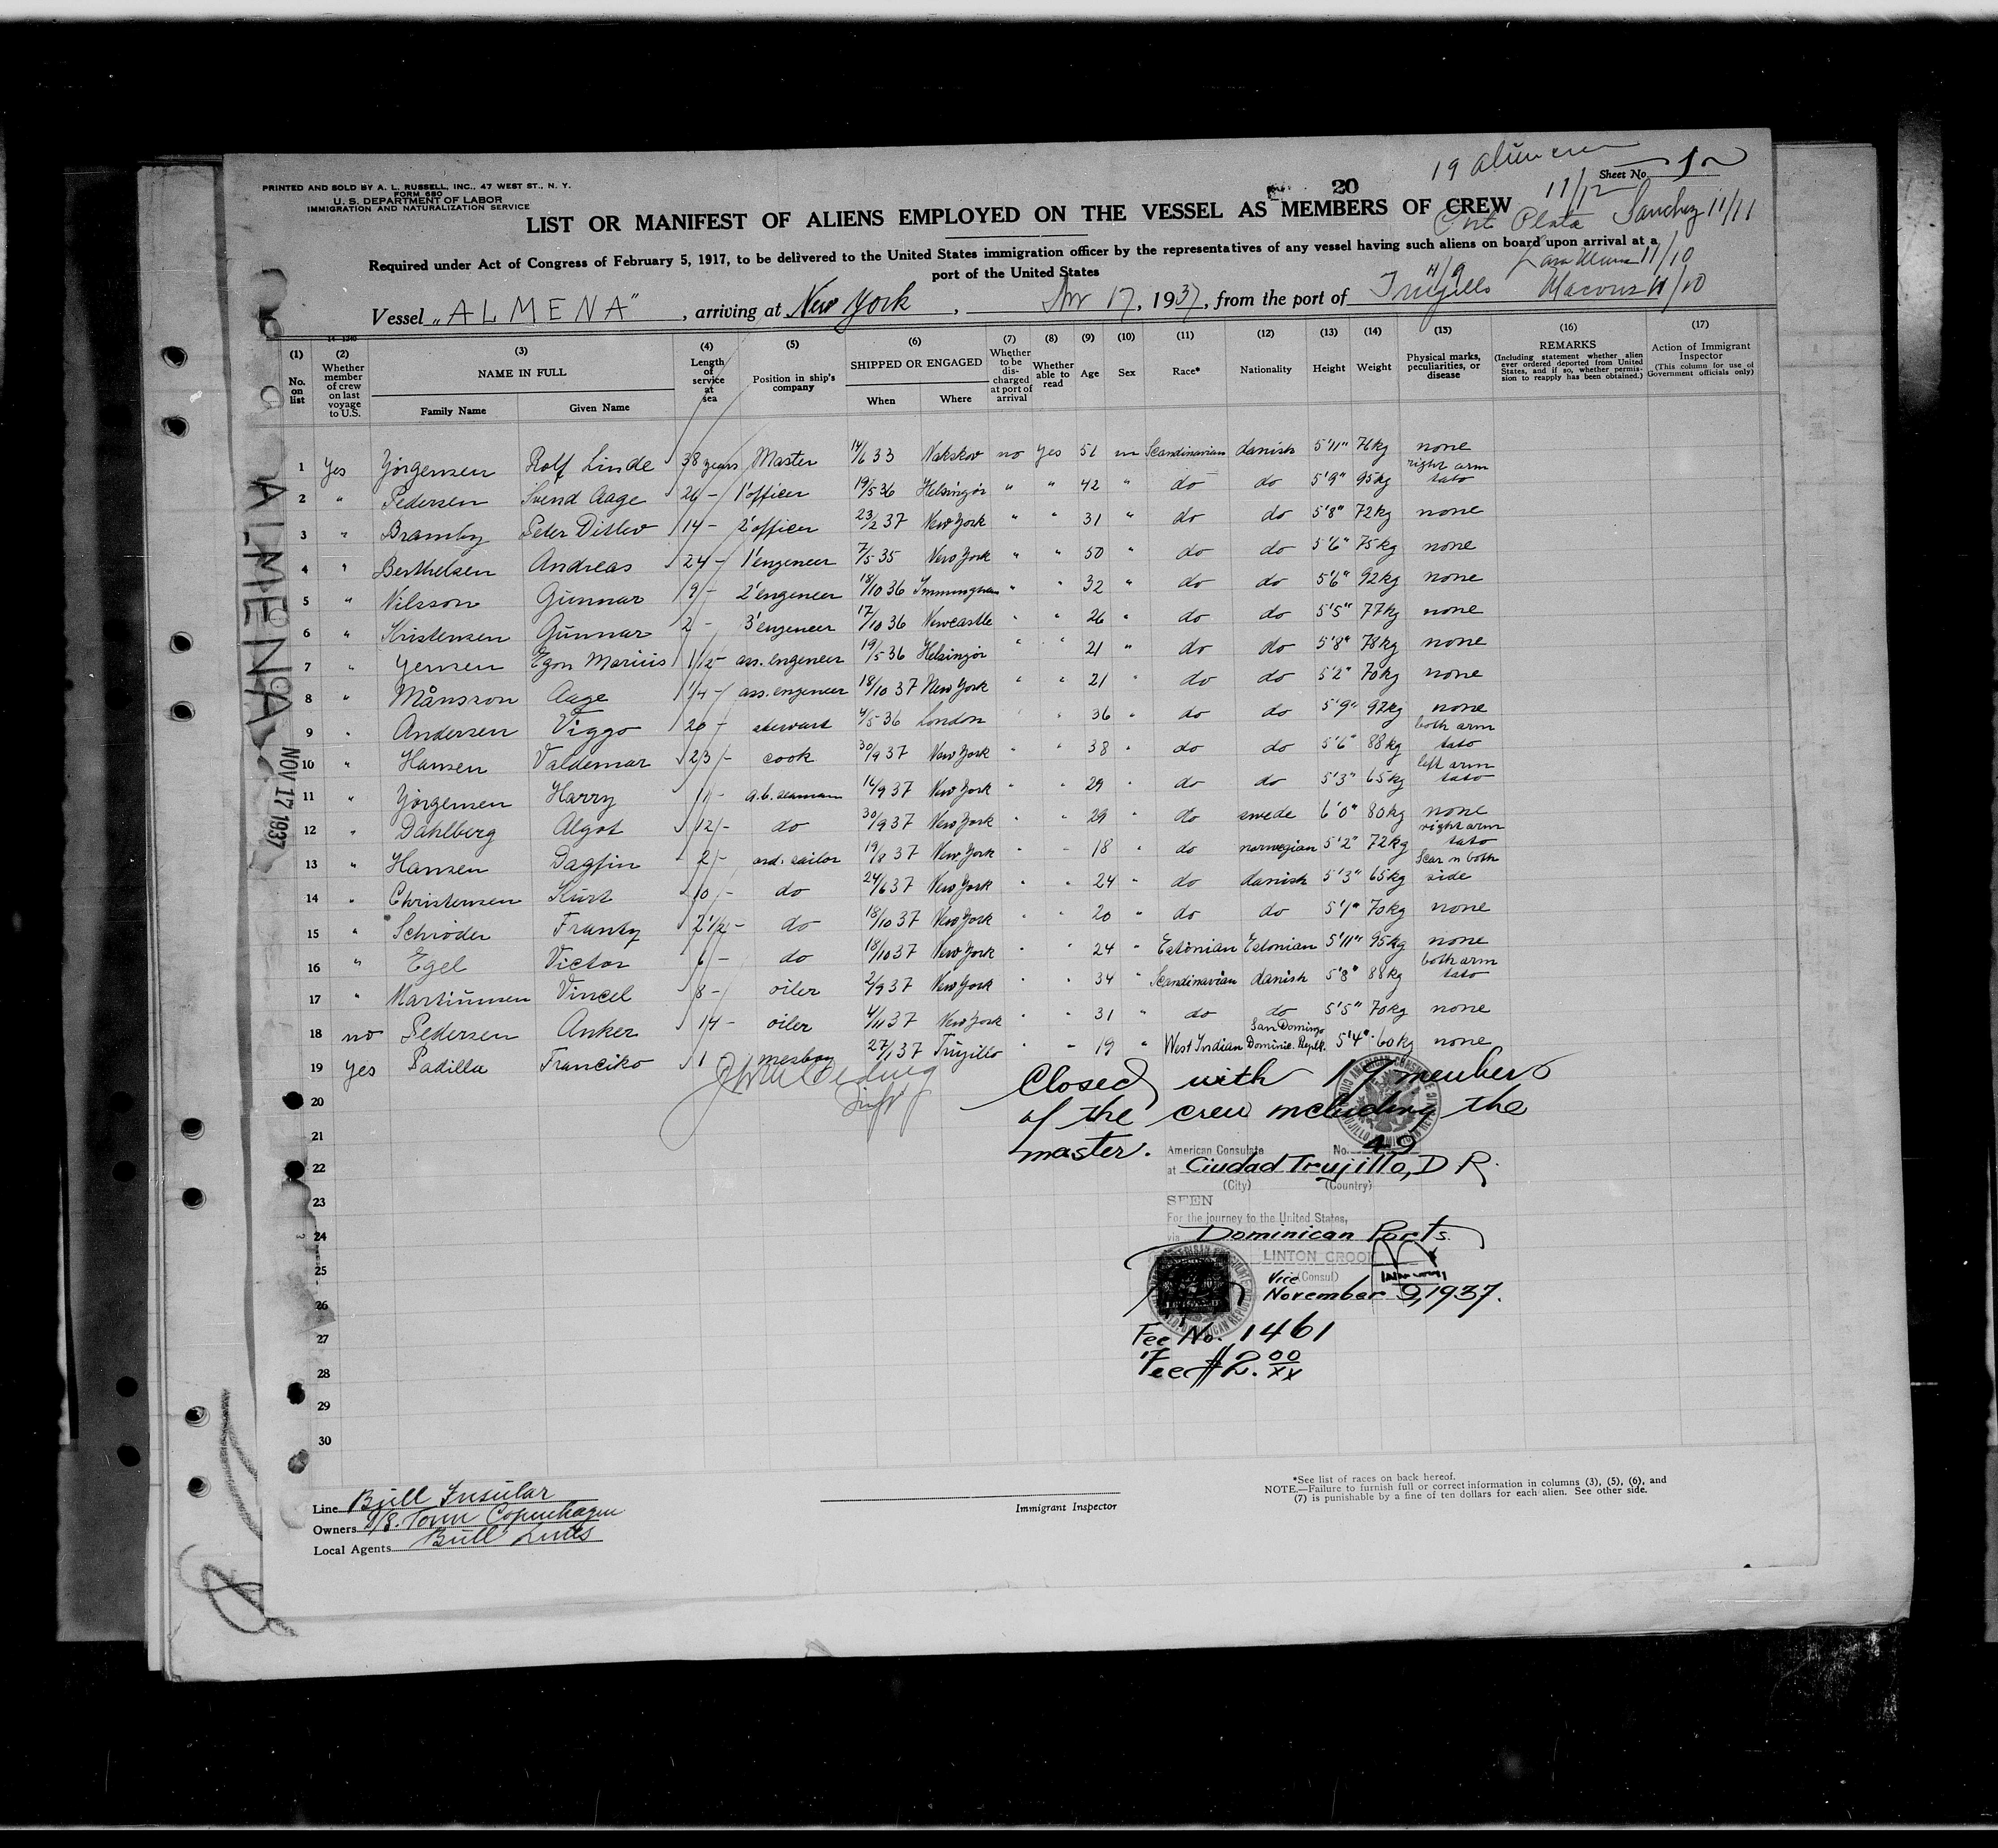 19 alien crew
PRINTED AND SOLD BY A. L. RUSSELL, INC., 47 WEST ST., N. Y.
FORM 680
U. S. DEPARTMENT OF LABOR
IMMIGRATION AND NATURALIZATION SERVICE
Sheet No. 1
20
11/12
LIST OR MANIFEST OF ALIENS EMPLOYED ON THE VESSEL AS MEMBERS OF CREW
Plata Sanchez 11/11
Required under Act of Congress of February 5, 1917, to be delivered to the United States immigration officer by the representatives of any vessel having such aliens on board upon arrival at a
port of the United States
11/10
11/9
Vessel "ALMENA", arriving at New York, Nov 17, 1937, from the port of Trujillo Macoris 11/10
(1) No. on list
(2) Whether member of crew on last voyage to U.S.
(3) NAME IN FULL Family Name Given Name
(4) Length of service at sea
(5) Position in ship's company
(6) SHIPPED OR ENGAGED When Where
(7) Whether to be discharged at port of arrival
(8) Whether able to read
(9) Age
(10) Sex
(11) Race*
(12) Nationality
(13) Height
(14) Weight
(15) Physical marks, peculiarities, or disease
(16) REMARKS (Including statement whether alien ever ordered deported from United States, and if so, whether permission to reapply has been obtained.)
(17) Action of Immigrant Inspector (This column for use of Government officials only)
1 Yes Jörgensen Rolf Linde 38 years Master 14/6 33 Nakskov no yes 51 m Scandinavian danish 5'11" 71kg none
2 " Pedersen Svend Aage 26 - 1' officer 19/5 36 Helsingör " " 42 " do do 5'9" 95kg right arm tato
3 " Bramby Peter Ditlev 14 - 2' officer 23/2 37 New York " " 31 " do do 5'8" 72kg none
4 " Berthelsen Andreas 24 - 1' engeneer 7/5 35 New York " " 50 " do do 5'6" 75kg none
5 " Nilsson Gunnar 9 - 2' engeneer 18/10 36 Immingham " " 32 " do do 5'6" 92kg none
6 " Kristensen Gunnar 2 - 3' engeneer 17/10 36 Newcastle " " 26 " do do 5'5" 77kg none
7 " Jensen Egon Marius 1 1/2 - ass. engeneer 19/5 36 Helsingör " " 21 " do do 5'8" 78kg none
8 " Månsson Aage 1/4 - ass. engeneer 18/10 37 New York " " 21 " do do 5'2" 70kg none
9 " Andersen Viggo 20 - stewart 4/5 36 London " 36 " do do 5'9" 92kg none
10 " Hansen Valdemar 23 - cook 30/9 37 New York " " 38 " do do 5'6" 88kg both arm tato
11 " Jörgensen Harry 11 - a.b. seaman 14/9 37 New York " " 29 " do do 5'3" 65kg left arm tato
12 " Dahlberg Algot 12 - do 30/9 37 New York " " 29 " do swede 6'0" 80kg none
13 " Hansen Dagfin 2 - ord. sailor 19/8 37 New York " " 18 " do norwegian 5'2" 72kg right arm tato
14 " Christensen Kurt 10 - do 24/6 37 New York " " 24 " do danish 5'3" 65kg Scar n both side
15 " Schröder Frantz 2 1/2 - do 18/10 37 New York " " 20 " do do 5'1" 70kg none
16 " Egel Victor 6 - do 18/10 37 New York " " 24 " Estonian Estonian 5'11" 95kg none
17 " Martinusen Vincel 8 - oiler 2/9 37 New York " " 34 " Scandinavian danish 5'8" 88kg both arm tato
18 no Pedersen Anker 14 - oiler 4/11 37 New York " " 31 " do do 5'5" 70kg none
19 yes Padilla Franciko 1 mesboy 27/1 37 Trujillo " " 19 " West Indian San Domingo Dominic. Repbl. 5'4" 60kg none
20
21
22
23
24
25
26
27
28
29
30
Closed with 19 members
of the crew including the
master.
American Consulate No. 49
at Ciudad Trujillo, D R.
(City) (Country)
SEEN
For the journey to the United States,
via Dominican Ports.
LINTON CROOK
Vice (Consul)
November 9, 1937.
Fee No. 1461
Fee $2.00/xx
ALMENA
NOV 17 1937
Line Bull Insular
Owners D/S. Torm Copenhagen
Local Agents Bull Lines
Immigrant Inspector
*See list of races on back hereof.
NOTE.—Failure to furnish full or correct information in columns (3), (5), (6), and
(7) is punishable by a fine of ten dollars for each alien. See other side.